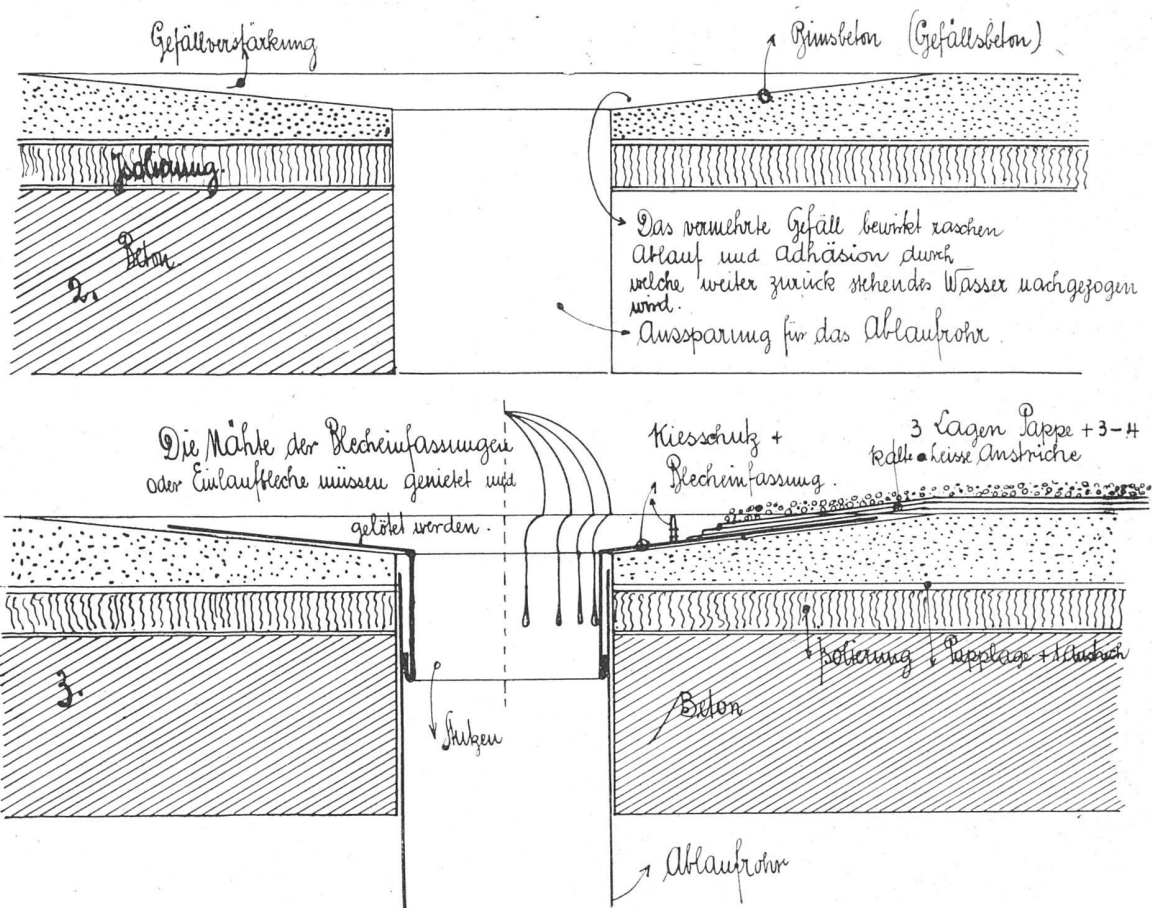 Gefällverstärkung
Bimsbeton (Gefällsbeton)
Isolierung.
Beton.
2.
Das vermehrte Gefäll bewirkt raschen
Ablauf und Adhäsion durch
welche weiter zurück stehendes Wasser nachgezogen
wird.
Aussparung für das Ablaufrohr.
Die Nähte der Blecheinfassungen
oder Einlaufbleche müssen genietet und
gelötet werden.
Kiesschutz +
Blecheinfassung.
3 Lagen Pappe + 3-4
kalte heisse Anstriche
Isolierung
Papplage + 1 Anstrich
3.
Beton
Stutzen
Ablaufrohr